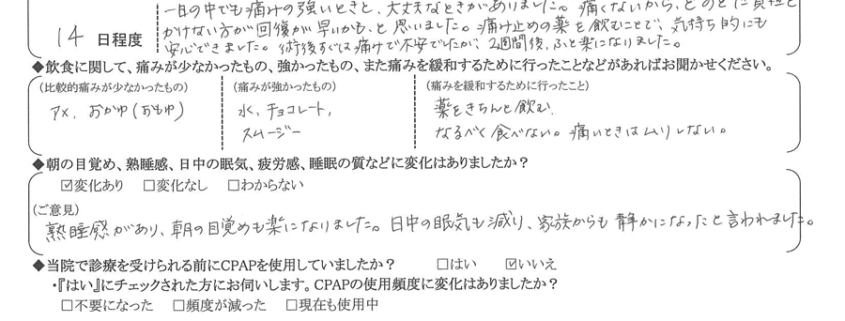 一日の中でも痛みの強いときと、大丈夫なときがありました。痛くないから、とのどに負担を
かけない方が回復が早いかも、と思いました。痛み止めの薬を飲むことで、気持ち的にも
14 日程度
安心できました。術後すぐは痛けで不安でしたが、2週間後、ふと楽になりました。
◆飲食に関して、痛みが少なかったもの、強かったもの、また痛みを緩和するために行ったことなどがあればお聞かせください。
(比較的痛みが少なかったもの)
アメ、おかゆ(おもゆ)
(痛みが強かったもの)
水、チョコレート、
スムージー
(痛みを緩和するために行ったこと)
薬をきちんと飲む、
なるべく食べない。痛いときはムリしない。
◆朝の目覚め、熟睡感、日中の眠気、疲労感、睡眠の質などに変化はありましたか?
☑変化あり ☐変化なし ☐わからない
(ご意見)
熟睡感があり、朝の目覚めも楽になりました。日中の眠気も減り、家族からも静かになったと言われました。
◆当院で診療を受けられる前にCPAPを使用していましたか? ☐はい ☑いいえ
・『はい』にチェックされた方にお伺いします。CPAPの使用頻度に変化はありましたか?
☐不要になった ☐頻度が減った ☐現在も使用中